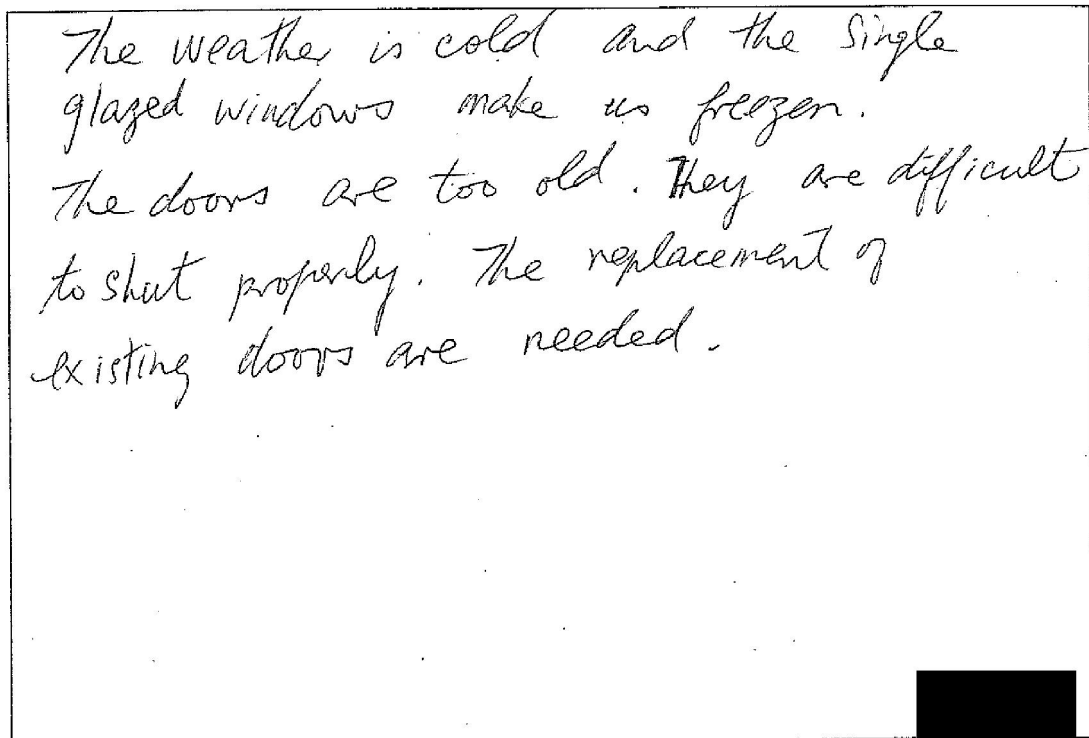 The weather is cold and the Single
glazed windows make us freezen.
The doors are too old. They are difficult
to shut properly. The replacement of
existing doors are needed.